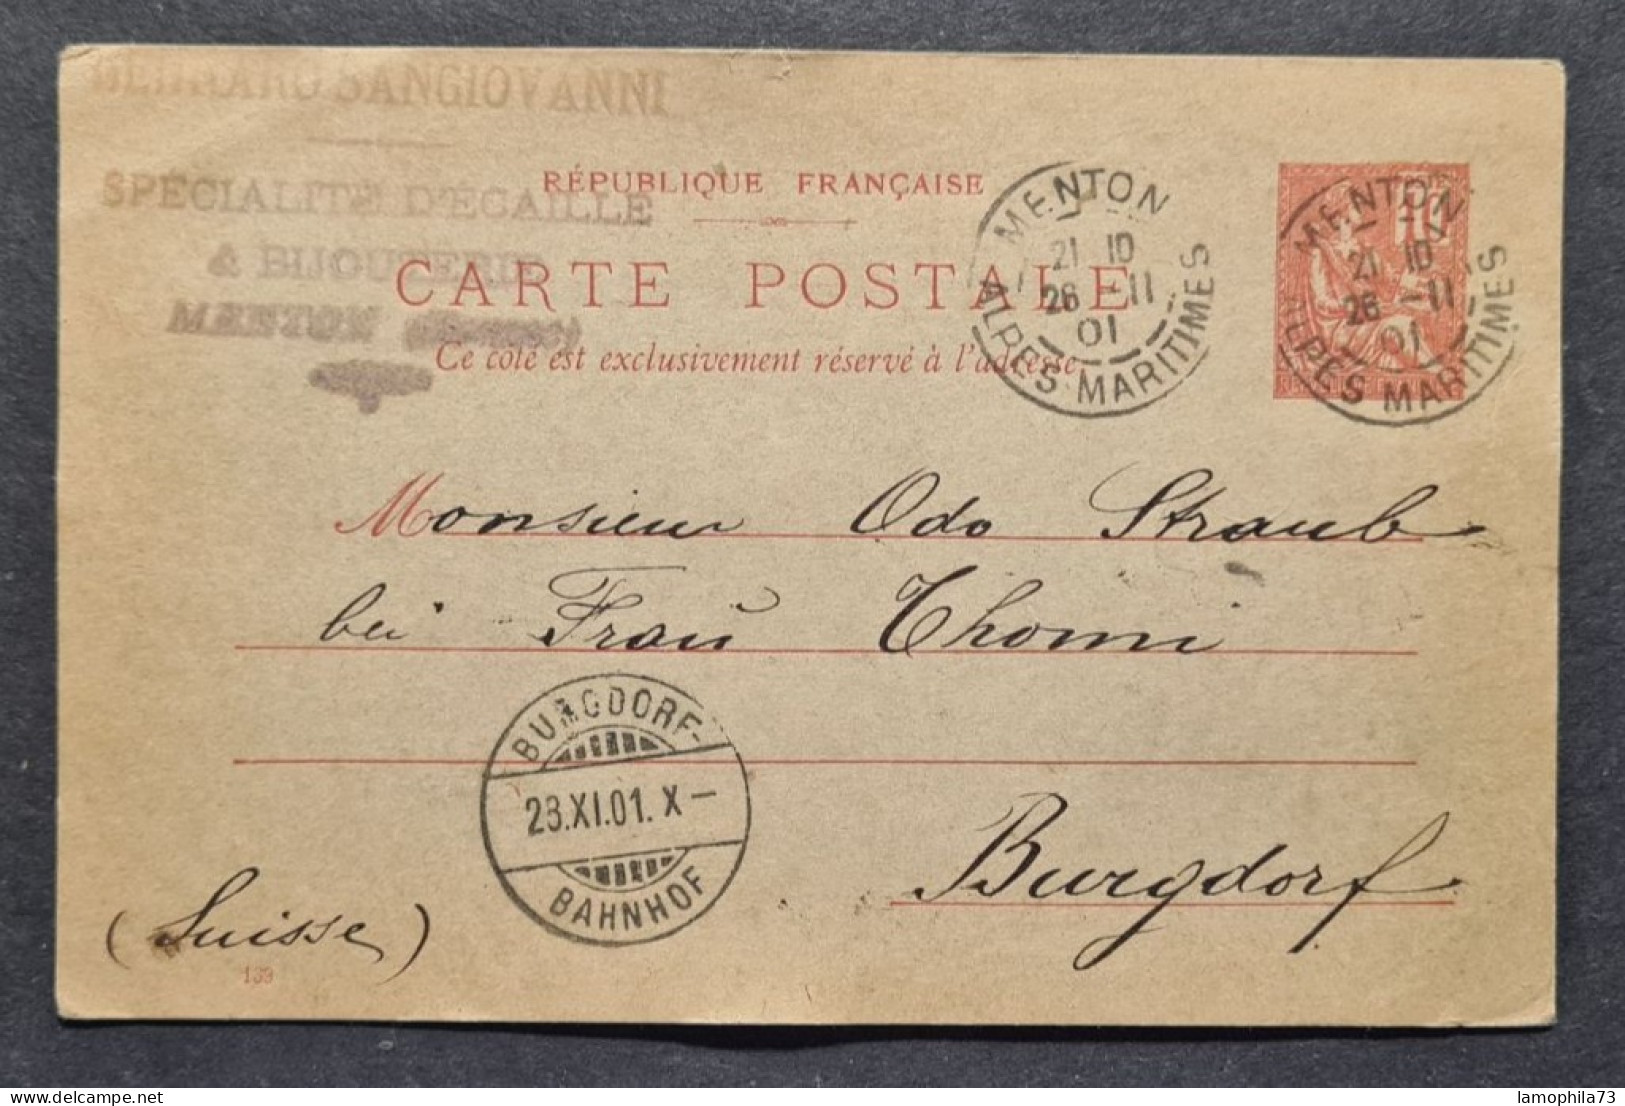 BERNARD SANGIOVANNI
SPÉCIALITÉ D'ÉCAILLE
& BIJOUTERIE
MENTON (France)
RÉPUBLIQUE FRANÇAISE
CARTE POSTALE
Ce côté est exclusivement réservé à l'adresse.
MENTON
21 10
26 -11
01
ALPES MARITIMES
MENTON
21 10
26 -11
01
ALPES MARITIMES
Monsieur Odo Straub
bei Frau Thomi
Burgdorf
(Suisse)
BURGDORF-
28.XI.01. X-
BAHNHOF
139
lamophila73